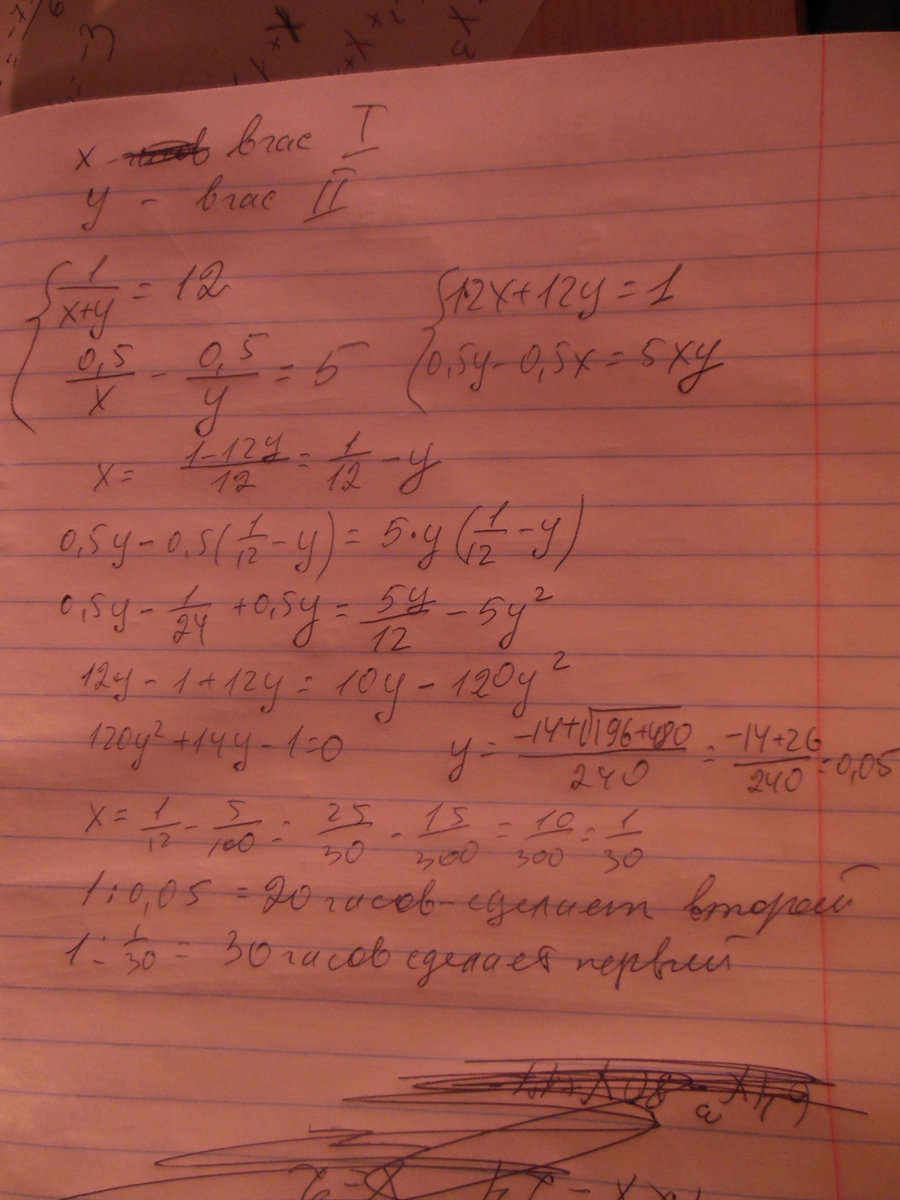 x - в час I
y - в час II
1/(x+y) = 12
0,5/x - 0,5/y = 5
12x+12y = 1
0,5y - 0,5x = 5xy
x = (1-12y)/12 = 1/12 - y
0,5y - 0,5(1/12 - y) = 5·y(1/12 - y)
0,5y - 1/24 + 0,5y = 5y/12 - 5y²
12y - 1 + 12y = 10y - 120y²
120y² + 14y - 1 = 0 y = (-14+√(196+480))/240 = (-14+26)/240 = 0,05
x = 1/12 - 5/100 = 25/30 - 15/300 = 10/300 = 1/30
1 : 0,05 = 20 часов - сделает второй
1 : 1/30 = 30 часов сделает первый